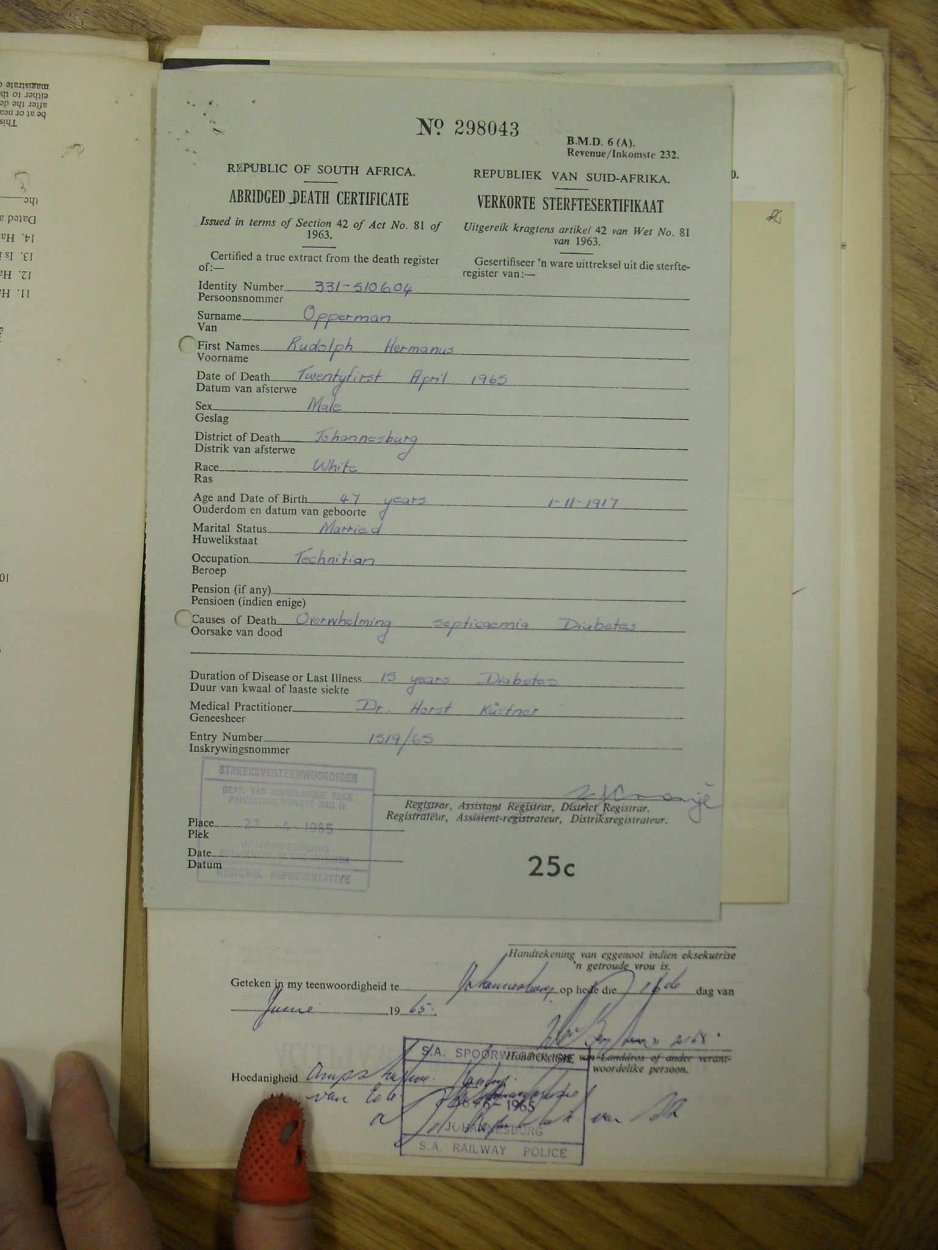 Nº 298043
B.M.D. 6 (A).
Revenue/Inkomste 232.
REPUBLIC OF SOUTH AFRICA.
ABRIDGED DEATH CERTIFICATE
Issued in terms of Section 42 of Act No. 81 of
1963.
Certified a true extract from the death register
of:—
REPUBLIEK VAN SUID-AFRIKA.
VERKORTE STERFTESERTIFIKAAT
Uitgereik kragtens artikel 42 van Wet No. 81
van 1963.
Gesertifiseer 'n ware uittreksel uit die sterfte-
register van:—
Identity Number 331-510604
Persoonsnommer
Surname Opperman
Van
First Names Rudolph Hermanus
Voorname
Date of Death Twentyfirst April 1965
Datum van afsterwe
Sex Male
Geslag
District of Death Johannesburg
Distrik van afsterwe
Race White
Ras
Age and Date of Birth 47 years 1-11-1917
Ouderdom en datum van geboorte
Marital Status Married
Huwelikstaat
Occupation Technitian
Beroep
Pension (if any)
Pensioen (indien enige)
Causes of Death Overwhelming septicaemia Diabetes
Oorsake van dood
Duration of Disease or Last Illness 15 years Diabetes
Duur van kwaal of laaste siekte
Medical Practitioner Dr. Horst Küstner
Geneesheer
Entry Number 1519/65
Inskrywingsnommer
STREEKSVERTEENWOORDIGER
REGIONAL REPRESENTATIVE
Registrar, Assistant Registrar, District Registrar.
Registrateur, Assistent-registrateur, Distriksregistrateur.
Place
Plek
Date
Datum
25c
Handtekening van eggenoot indien eksekutrise
'n getroude vrou is.
Geteken in my teenwoordigheid te Johannesburg op hede die 16de dag van
Junie 1965.
Landdros of ander verant-
woordelike persoon.
Hoedanigheid
van
S.A. SPOORWEGPOLISIE
1965
JOHANNESBURG
S.A. RAILWAY POLICE
This
be at or near
after the de
either to th
magistrate
the
Dated a
14. Ha
13. Is i
12. Ha
11. H
10